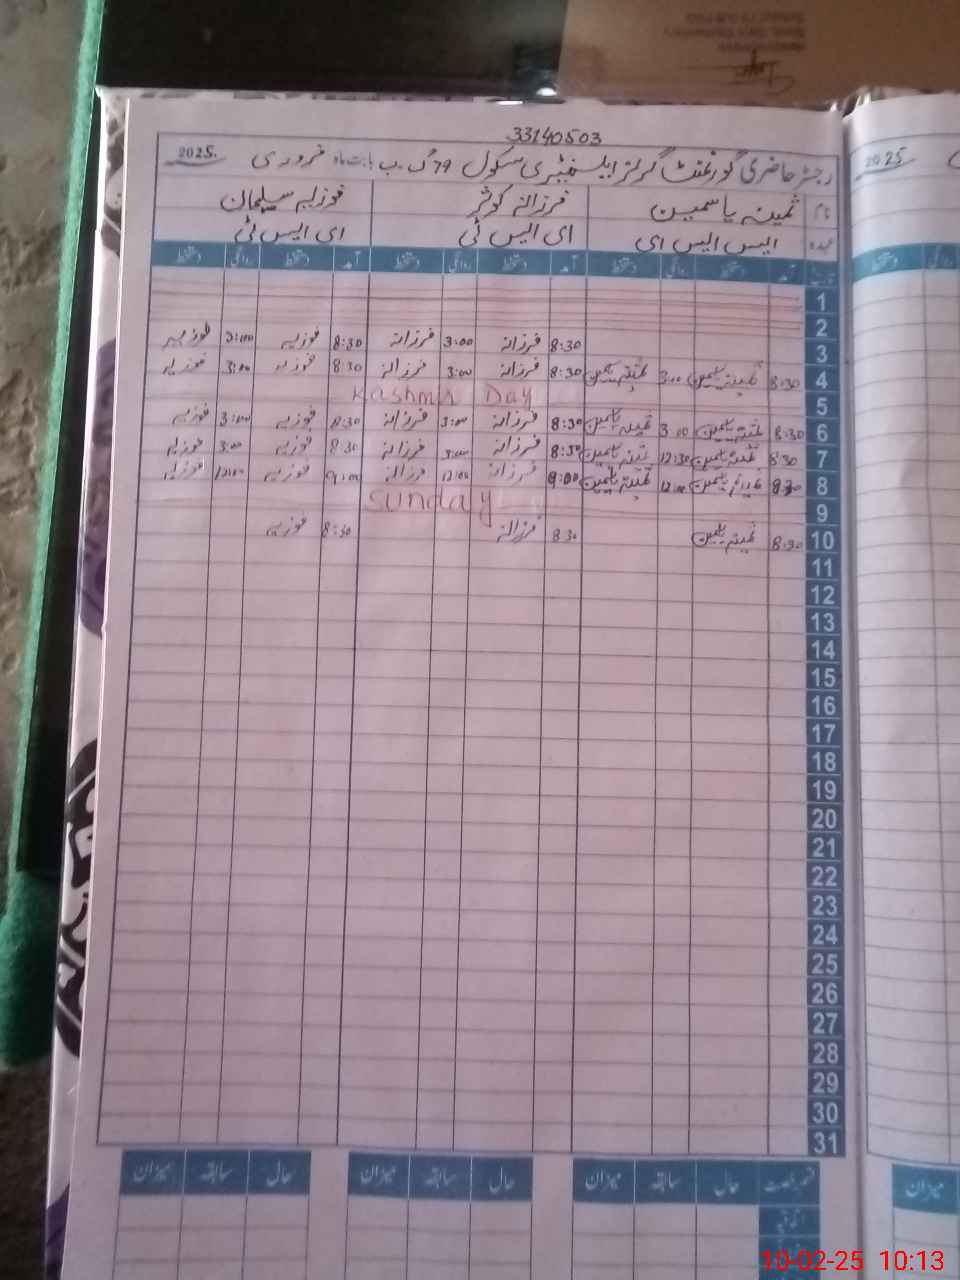 33140503
رجسٹر حاضری گورنمنٹ گرلز ایلیمنٹری سکول 79 گ۔ب بابت ماہ فروری 2025.
نام ثمینہ یاسمین فرزانہ کوثر فوزیہ سلیمان
عہدہ ایس ایس ای ای ایس ٹی ای ایس ٹی
تاریخ آمد دستخط روانگی دستخط آمد دستخط روانگی دستخط آمد دستخط روانگی دستخط
1
2
3 8:30 فرزانہ 3:00 فرزانہ 8:30 فوزیہ 3:00 فوزیہ
4 8:30 ثمینہ یاسمین 3:00 ثمینہ یاسمین 8:30 فرزانہ 3:00 فرزانہ 8:30 فوزیہ 3:00 فوزیہ
5 Kashmir Day
6 8:30 ثمینہ یاسمین 3:00 ثمینہ یاسمین 8:30 فرزانہ 3:00 فرزانہ 8:30 فوزیہ 3:00 فوزیہ
7 8:30 ثمینہ یاسمین 12:30 ثمینہ یاسمین 8:30 فرزانہ 3:00 فرزانہ 8:30 فوزیہ 3:00 فوزیہ
8 8:30 ثمینہ یاسمین 12:00 ثمینہ یاسمین 9:00 فرزانہ 12:00 فرزانہ 9:00 فوزیہ 12:00 فوزیہ
9 Sunday
10 8:30 ثمینہ یاسمین 830 فرزانہ 8:30 فوزیہ
11
12
13
14
15
16
17
18
19
20
21
22
23
24
25
26
27
28
29
30
31
حال سابقہ میزان حال سابقہ میزان حال سابقہ میزان
2025
دستخط روانگی
میزان
10-02-25 10:13